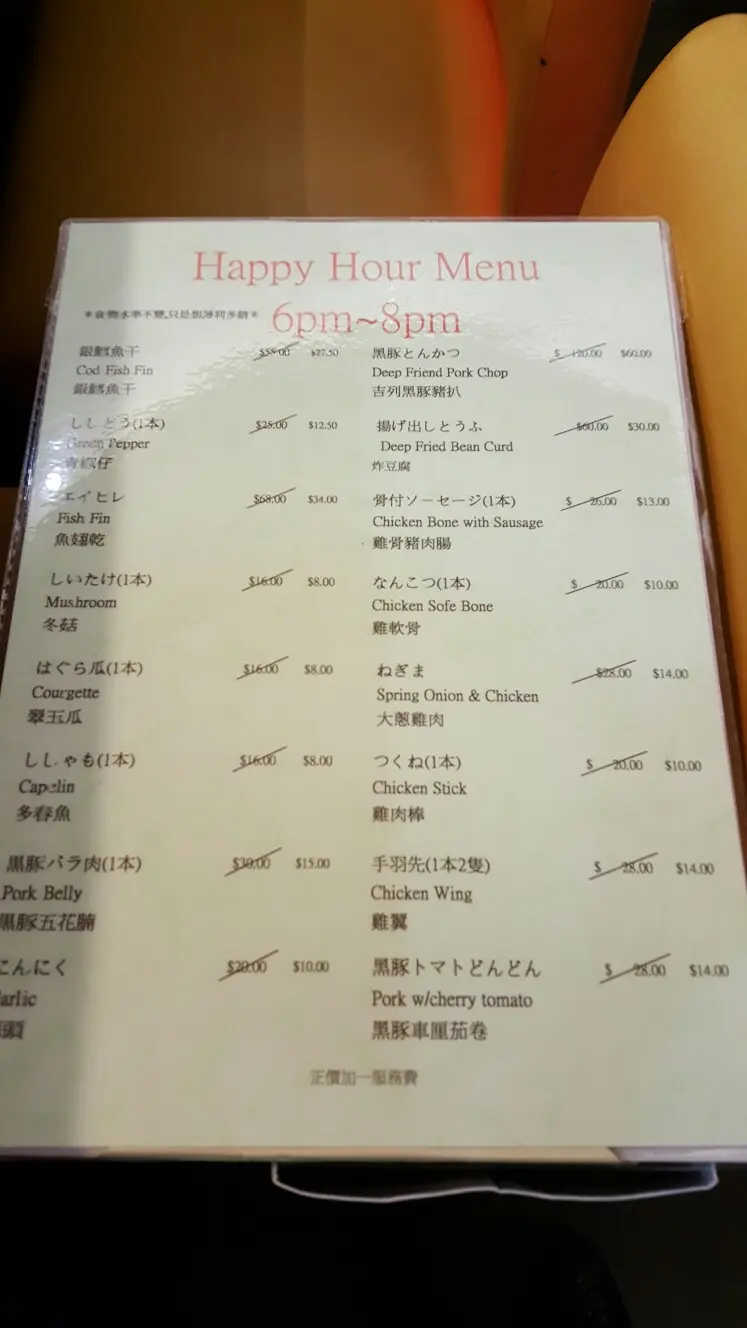 Happy Hour Menu
*食物水準不變,只是想薄利多銷*
6pm~8pm
銀鱈魚干 $55.00 $27.50
Cod Fish Fin
銀鱈魚干
ししとう(1本) $25.00 $12.50
Green Pepper
青椒仔
エイヒレ $68.00 $34.00
Fish Fin
魚翅乾
しいたけ(1本) $16.00 $8.00
Mushroom
冬菇
はぐら瓜(1本) $16.00 $8.00
Courgette
翠玉瓜
ししゃも(1本) $16.00 $8.00
Capelin
多春魚
黒豚バラ肉(1本) $30.00 $15.00
Pork Belly
黒豚五花腩
にんにく $20.00 $10.00
arlic
頭
黒豚とんかつ $ 120.00 $60.00
Deep Friend Pork Chop
吉列黑豚豬扒
揚げ出しとうふ $60.00 $30.00
Deep Fried Bean Curd
炸豆腐
骨付ソーセージ(1本) $ 26.00 $13.00
Chicken Bone with Sausage
雞骨豬肉腸
なんこつ(1本) $ 20.00 $10.00
Chicken Sofe Bone
雞軟骨
ねぎま $28.00 $14.00
Spring Onion & Chicken
大蔥雞肉
つくね(1本) $ 20.00 $10.00
Chicken Stick
雞肉棒
手羽先(1本2隻) $ 28.00 $14.00
Chicken Wing
雞翼
黒豚トマトどんどん $ 28.00 $14.00
Pork w/cherry tomato
黑豚車厘茄卷
正價加一服務費